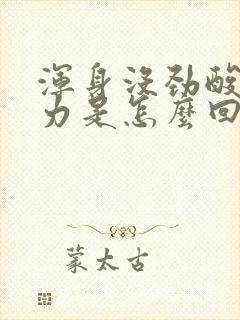 渾身沒勁酸
力是怎麼回
蒙太古